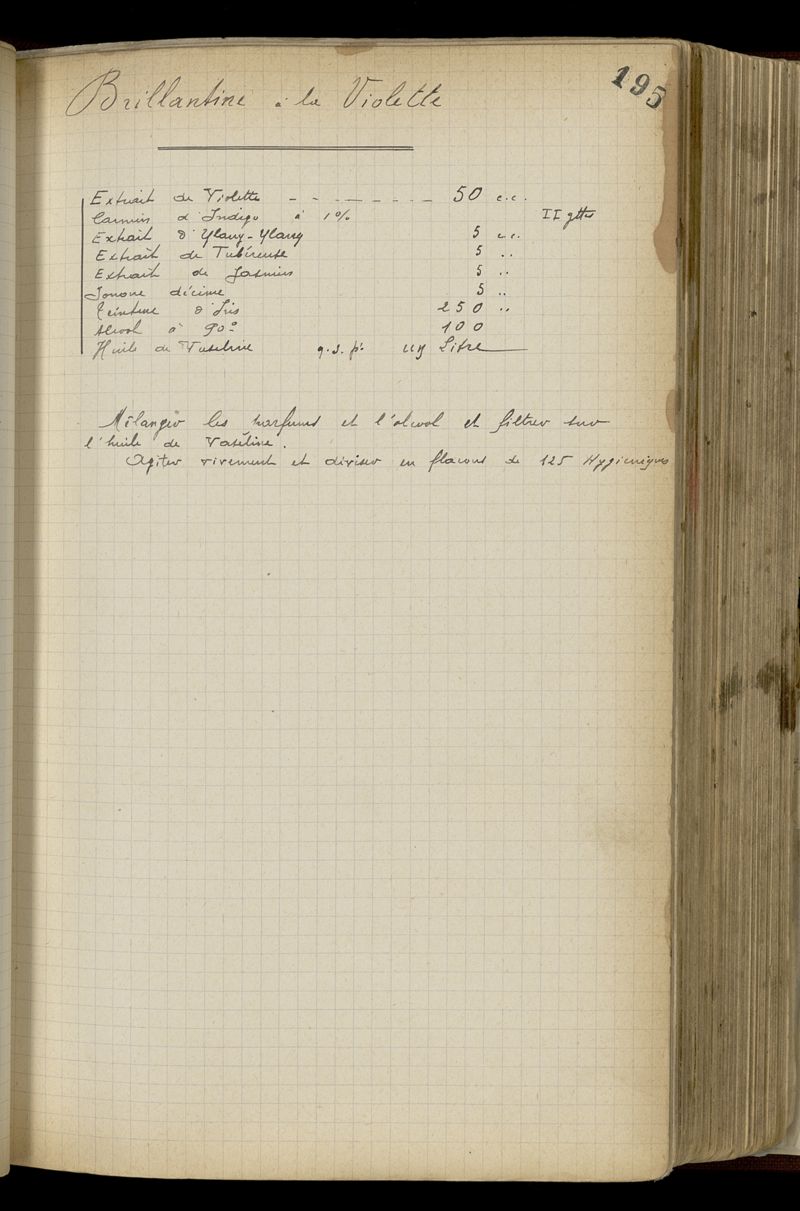 195
Brillantine à la Violette
Extrait de Violette - - - - - - - - 50 c.c.
Carmin d'Indigo à 1% II gttes
Extrait d'Ylang-Ylang 5 c.c.
Extrait de Tubéreuse 5 ..
Extrait de Jasmin 5 ..
Ionone décime 5 ..
Teinture d'Iris 250 ..
Alcool à 90° 100
Huile de Vaseline q.s. pr. un Litre
Mélanger les parfums et l'alcool et filtrer sur
l'huile de Vaseline.
Agiter vivement et diviser en flacons de 125 Hygieniques